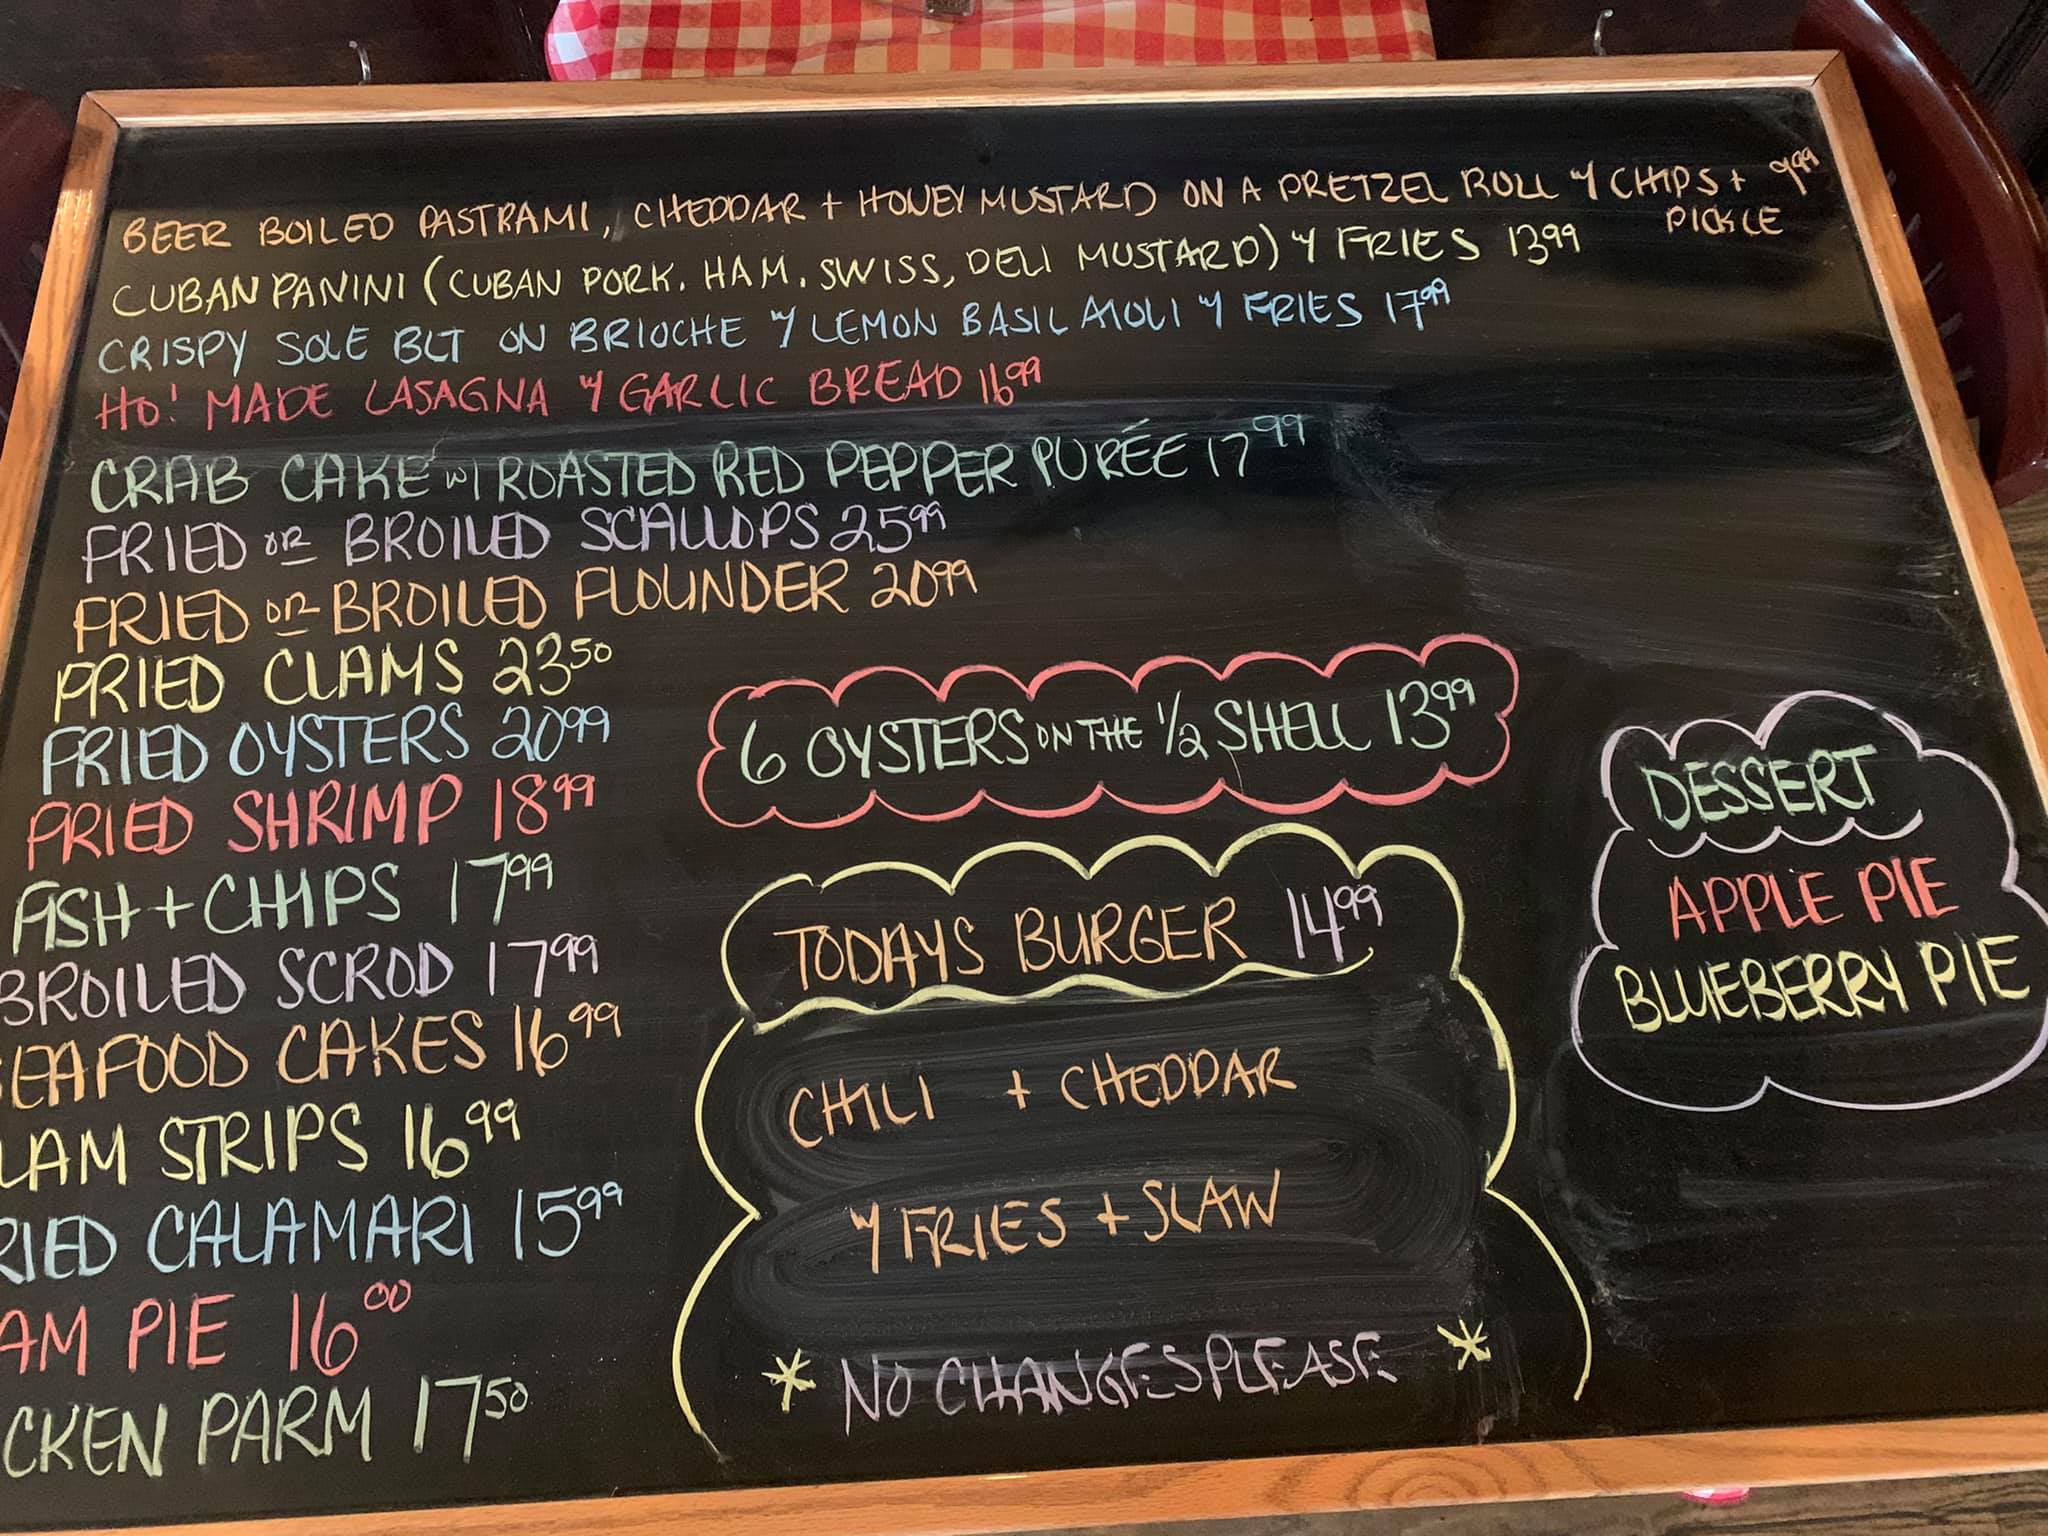 BEER BOILED PASTRAMI, CHEDDAR + HONEY MUSTARD ON A PRETZEL ROLL w/ CHIPS + 9.99
PICKLE
CUBAN PANINI (CUBAN PORK, HAM, SWISS, DELI MUSTARD) w/ FRIES 13.99
CRISPY SOLE BLT ON BRIOCHE w/ LEMON BASIL AIOLI w/ FRIES 17.99
HO! MADE LASAGNA w/ GARLIC BREAD 16.99
CRAB CAKE w/ ROASTED RED PEPPER PURÉE 17.99
FRIED OR BROILED SCALLOPS 25.99
FRIED OR BROILED FLOUNDER 20.99
FRIED CLAMS 23.50
FRIED OYSTERS 20.99
FRIED SHRIMP 18.99
FISH + CHIPS 17.99
BROILED SCROD 17.99
SEAFOOD CAKES 16.99
LAM STRIPS 16.99
RIED CALAMARI 15.99
AM PIE 16.00
CKEN PARM 17.50
6 OYSTERS ON THE 1/2 SHELL 13.99
TODAYS BURGER 14.99
CHILI + CHEDDAR
w/ FRIES + SLAW
* NO CHANGES PLEASE *
DESSERT
APPLE PIE
BLUEBERRY PIE